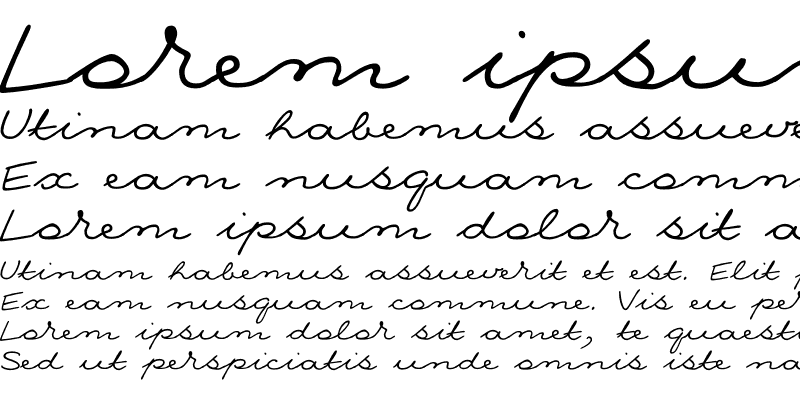 Lorem ipsu
Utinam habemus assueve
Ex eam nusquam comm
Lorem ipsum dolor sit a
Utinam habemus assueverit et est. Elit
Ex eam nusquam commune. Vis eu per
Lorem ipsum dolor sit amet, te quaesti
Sed ut perspiciatis unde omnis iste na